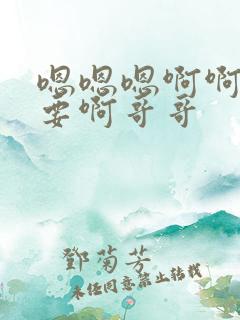 嗯嗯嗯啊啊
要啊哥哥
鄧菊芳
未经同意禁止转载